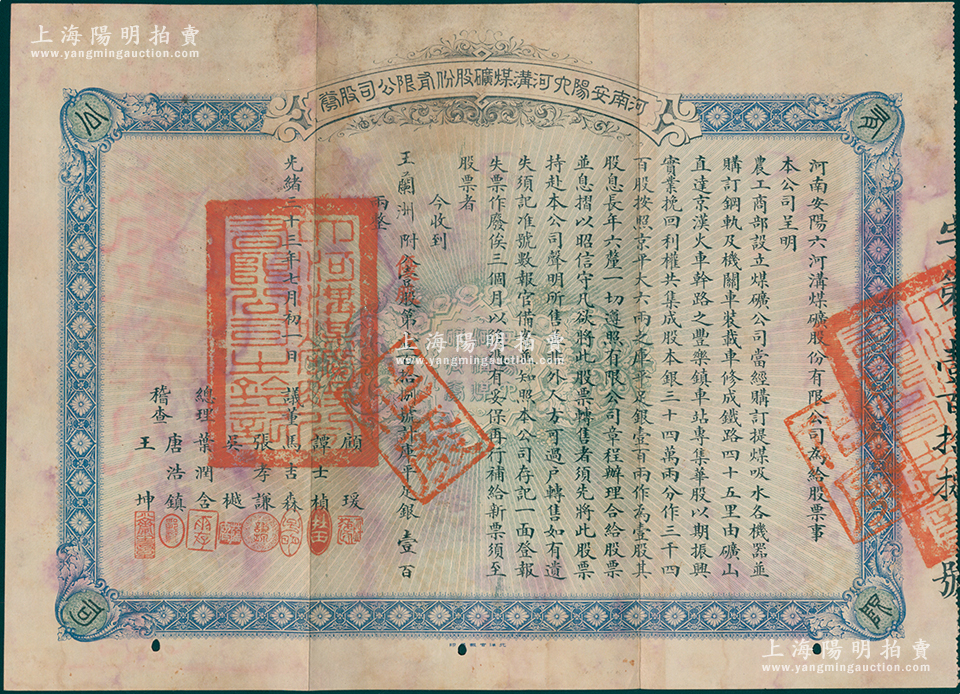 上海陽明拍賣
www.yangmingauction.com
河南安陽六河溝煤礦股份有限公司股票
有限公司
河南安陽六河溝煤礦股份有限公司為給股票事
本公司呈明
農工商部設立煤礦公司當經購訂提煤吸水各機器並
購訂鋼軌及機關車裝載車修成鐵路四十五里由礦山
直達京漢火車幹路之豐樂鎮車站專集華股以期振興
實業挽回利權共集成股本銀三十四萬兩分作三千四
百股按照京平大六兩之庫平足銀壹百兩作為壹股其
股息長年六釐一切遵照有限公司章程辦理合給股票
並息摺以昭信守凡欲將此股票轉售者須先將此股票
持赴本公司聲明所售非外人方可過戶轉售如有遺
失須記准號數報官備案知照本公司存記一面登報
失票作廢俟三個月以後有妥保再行補給新票須至
股票者
今收到
王蘭洲附公壹股第 拾捌號計庫平足銀壹百
兩整
光緒三十三年七月初一日
顧瑗
譚士楨
議董馬吉森
張孝謙
吳樾
總理葉潤含
唐浩鎮
稽查
王坤
字第 壹百拾捌號
上海陽明拍賣
www.yangmingauction.com
上海陽明拍賣
www.yangmingauction.com